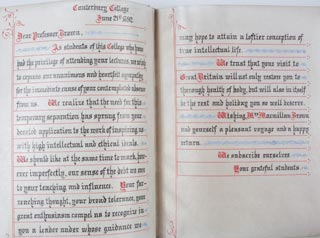 Canterbury College
June 21st 1892
Dear Professor Brown,
As students of this College who have
had the privilege of attending your lectures, we wish
to express our unanimous and heartfelt sympathy
for the immediate cause of your contemplated absence
from us. We realize that the need for this
temporary separation has sprung from your
devoted application to the work of inspiring us
with high intellectual and ethical ideals.
We should like at the same time to mark, how-
ever imperfectly, our sense of the debt we owe
to your teaching and influence. Your far-
reaching thought, your broad tolerance, your
great enthusiasm compel us to recognize in
you a leader under whose guidance we
may hope to attain a loftier conception of
true intellectual life.
We trust that your visit to
Great Britain will not only restore you to
thorough health of body, but will also in itself
be the rest and holiday you so well deserve.
Wishing Mrs Macmillan Brown
and yourself a pleasant voyage and a happy
return
We subscribe ourselves
Your grateful students.